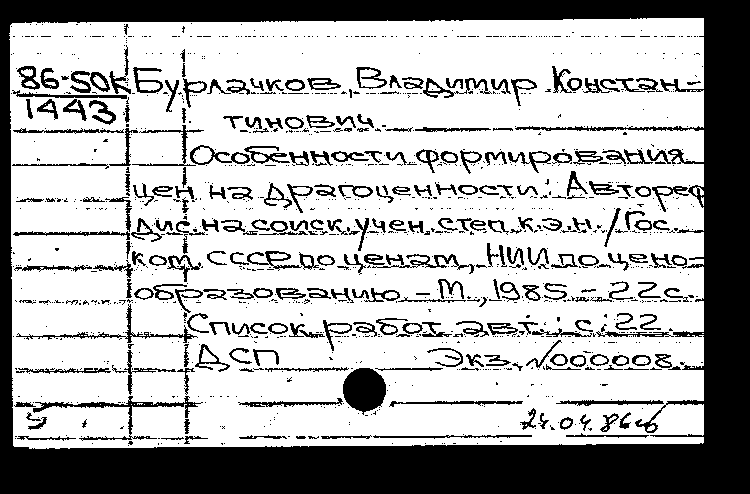 86-50К Бурлачков, Владимир Констан-
1443
тинович.
Особенности формирования
цен на драгоценности: Автореф
дис. на соиск. учен. степ. к.э.н. / Гос.
ком. СССР по ценам, НИИ по цено-
образованию. - М., 1985 - 22 с.
Список работ авт.: с. 22.
ДСП Экз. №000008.
24.04.86